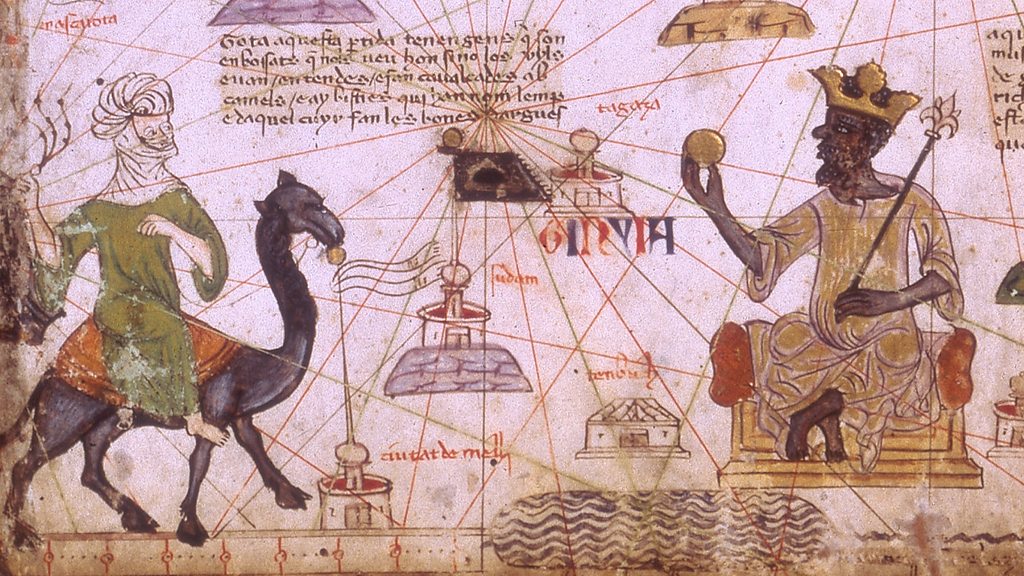 Tota aquesta ptida tenen gens q son
enbosats q nols veu hom sino los uyls
e uan en tendes / e fan caualcades ab
camels / e ay bisties qui han nom lemp
e daquel cuyr fan les bones dargues
tagaza
GINYIA
sudam
tenbuch
ciutat de melly